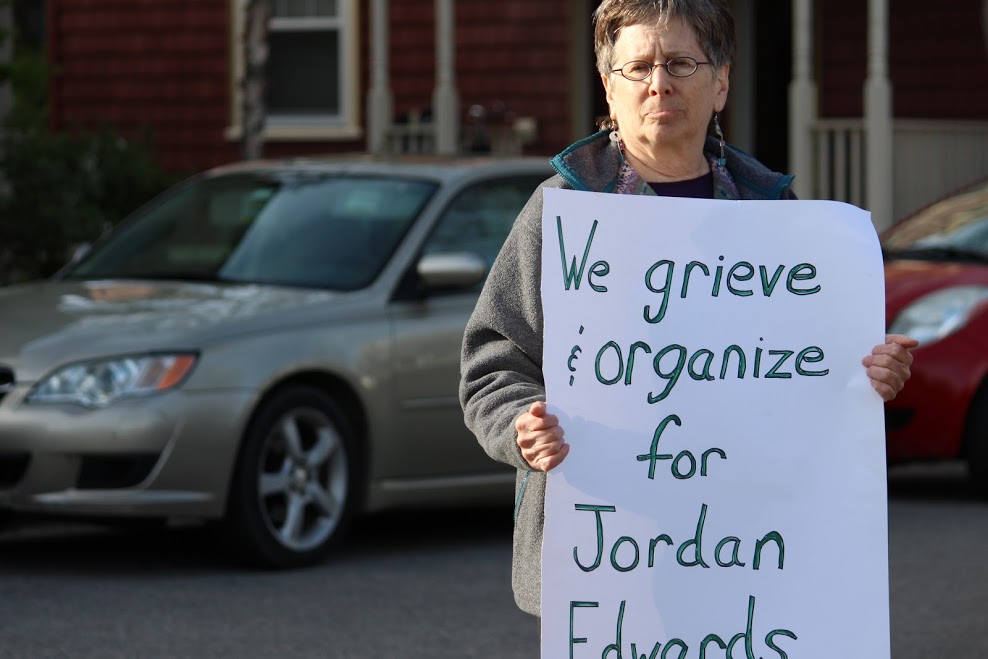 We grieve
& organize
for
Jordan
Edwards